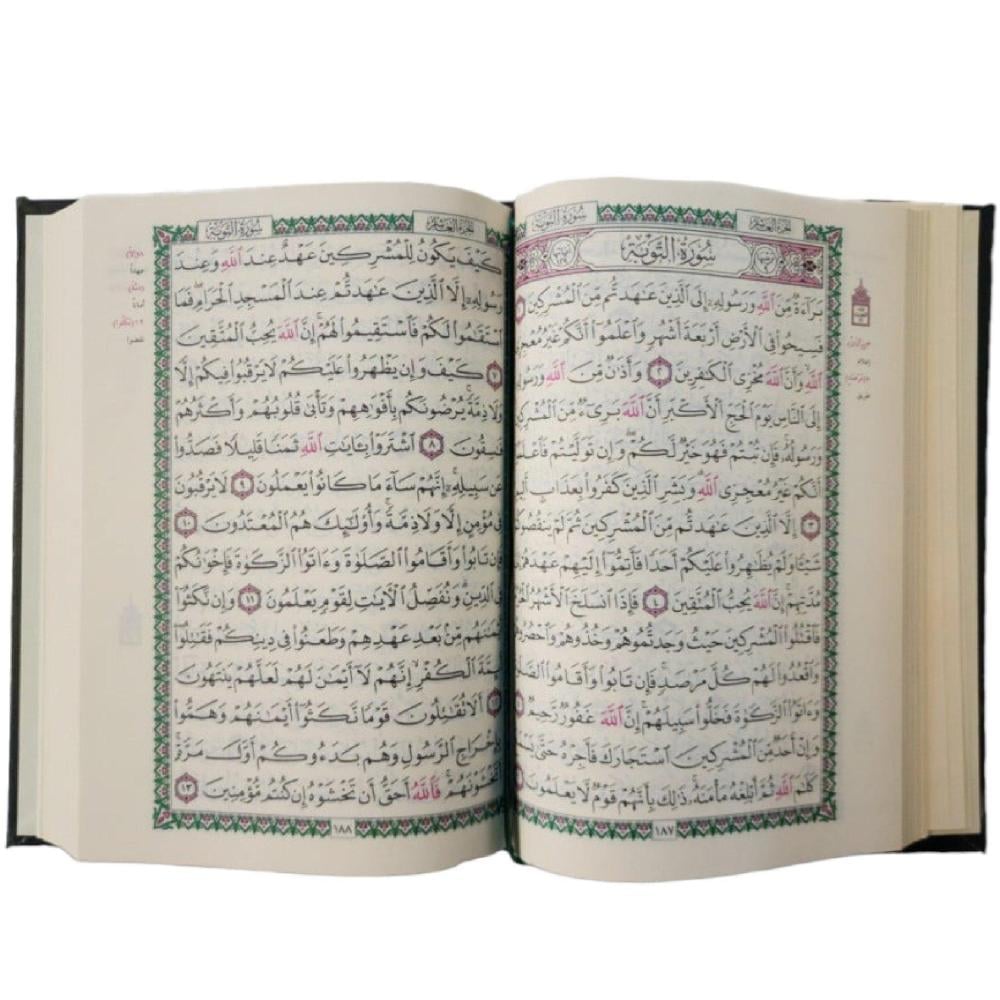 سُورَةُ التَّوْبَةِ
الجُزْءُ العَاشِرُ
سُورَةُ التَّوْبَةِ
بَرَآءَةٌ مِّنَ ٱللَّهِ وَرَسُولِهِۦٓ إِلَى ٱلَّذِينَ عَٰهَدتُّم مِّنَ ٱلْمُشْرِكِينَ ١
فَسِيحُوا۟ فِى ٱلْأَرْضِ أَرْبَعَةَ أَشْهُرٍ وَٱعْلَمُوٓا۟ أَنَّكُمْ غَيْرُ مُعْجِزِى
ٱللَّهِ ۙ وَأَنَّ ٱللَّهَ مُخْزِى ٱلْكَٰفِرِينَ ٢ وَأَذَٰنٌ مِّنَ ٱللَّهِ وَرَسُولِهِۦٓ
إِلَى ٱلنَّاسِ يَوْمَ ٱلْحَجِّ ٱلْأَكْبَرِ أَنَّ ٱللَّهَ بَرِىٓءٌ مِّنَ ٱلْمُشْرِكِينَ
وَرَسُولُهُۥ ۚ فَإِن تُبْتُمْ فَهُوَ خَيْرٌ لَّكُمْ ۖ وَإِن تَوَلَّيْتُمْ فَٱعْلَمُوٓا۟
أَنَّكُمْ غَيْرُ مُعْجِزِى ٱللَّهِ ۗ وَبَشِّرِ ٱلَّذِينَ كَفَرُوا۟ بِعَذَابٍ أَلِيمٍ
٣ إِلَّا ٱلَّذِينَ عَٰهَدتُّم مِّنَ ٱلْمُشْرِكِينَ ثُمَّ لَمْ يَنقُصُوكُمْ
شَيْـًٔا وَلَمْ يُظَٰهِرُوا۟ عَلَيْكُمْ أَحَدًا فَأَتِمُّوٓا۟ إِلَيْهِمْ عَهْدَهُمْ إِلَىٰ
مُدَّتِهِمْ ۚ إِنَّ ٱللَّهَ يُحِبُّ ٱلْمُتَّقِينَ ٤ فَإِذَا ٱنسَلَخَ ٱلْأَشْهُرُ ٱلْحُرُمُ
فَٱقْتُلُوا۟ ٱلْمُشْرِكِينَ حَيْثُ وَجَدتُّمُوهُمْ وَخُذُوهُمْ وَٱحْصُرُوهُمْ
وَٱقْعُدُوا۟ لَهُمْ كُلَّ مَرْصَدٍ ۚ فَإِن تَابُوا۟ وَأَقَامُوا۟ ٱلصَّلَوٰةَ
وَءَاتَوُا۟ ٱلزَّكَوٰةَ فَخَلُّوا۟ سَبِيلَهُمْ ۚ إِنَّ ٱللَّهَ غَفُورٌ رَّحِيمٌ ٥
وَإِنْ أَحَدٌ مِّنَ ٱلْمُشْرِكِينَ ٱسْتَجَارَكَ فَأَجِرْهُ حَتَّىٰ يَسْمَعَ
كَلَٰمَ ٱللَّهِ ثُمَّ أَبْلِغْهُ مَأْمَنَهُۥ ۚ ذَٰلِكَ بِأَنَّهُمْ قَوْمٌ لَّا يَعْلَمُونَ ٦
١٨٧
الجُزْءُ العَاشِرُ
سُورَةُ التَّوْبَةِ
كَيْفَ يَكُونُ لِلْمُشْرِكِينَ عَهْدٌ عِندَ ٱللَّهِ وَعِندَ
رَسُولِهِۦٓ إِلَّا ٱلَّذِينَ عَٰهَدتُّمْ عِندَ ٱلْمَسْجِدِ ٱلْحَرَامِ ۖ فَمَا
ٱسْتَقَٰمُوا۟ لَكُمْ فَٱسْتَقِيمُوا۟ لَهُمْ ۚ إِنَّ ٱللَّهَ يُحِبُّ ٱلْمُتَّقِينَ
٧ كَيْفَ وَإِن يَظْهَرُوا۟ عَلَيْكُمْ لَا يَرْقُبُوا۟ فِيكُمْ إِلًّا
وَلَا ذِمَّةً ۚ يُرْضُونَكُم بِأَفْوَٰهِهِمْ وَتَأْبَىٰ قُلُوبُهُمْ وَأَكْثَرُهُمْ
فَٰسِقُونَ ٨ ٱشْتَرَوْا۟ بِـَٔايَٰتِ ٱللَّهِ ثَمَنًا قَلِيلًا فَصَدُّوا۟
عَن سَبِيلِهِۦٓ ۚ إِنَّهُمْ سَآءَ مَا كَانُوا۟ يَعْمَلُونَ ٩ لَا يَرْقُبُونَ
فِى مُؤْمِنٍ إِلًّا وَلَا ذِمَّةً ۚ وَأُو۟لَٰٓئِكَ هُمُ ٱلْمُعْتَدُونَ ١٠
فَإِن تَابُوا۟ وَأَقَامُوا۟ ٱلصَّلَوٰةَ وَءَاتَوُا۟ ٱلزَّكَوٰةَ فَإِخْوَٰنُكُمْ
فِى ٱلدِّينِ ۗ وَنُفَصِّلُ ٱلْـَٔايَٰتِ لِقَوْمٍ يَعْلَمُونَ ١١ وَإِن نَّكَثُوٓا۟
أَيْمَٰنَهُم مِّنۢ بَعْدِ عَهْدِهِمْ وَطَعَنُوا۟ فِى دِينِكُمْ فَقَٰتِلُوٓا۟
أَئِمَّةَ ٱلْكُفْرِ ۙ إِنَّهُمْ لَآ أَيْمَٰنَ لَهُمْ لَعَلَّهُمْ يَنتَهُونَ
١٢ أَلَا تُقَٰتِلُونَ قَوْمًا نَّكَثُوٓا۟ أَيْمَٰنَهُمْ وَهَمُّوا۟
بِإِخْرَاجِ ٱلرَّسُولِ وَهُم بَدَءُوكُمْ أَوَّلَ مَرَّةٍ ۚ
أَتَخْشَوْنَهُمْ ۚ فَٱللَّهُ أَحَقُّ أَن تَخْشَوْهُ إِن كُنتُم مُّؤْمِنِينَ ١٣
١٨٨